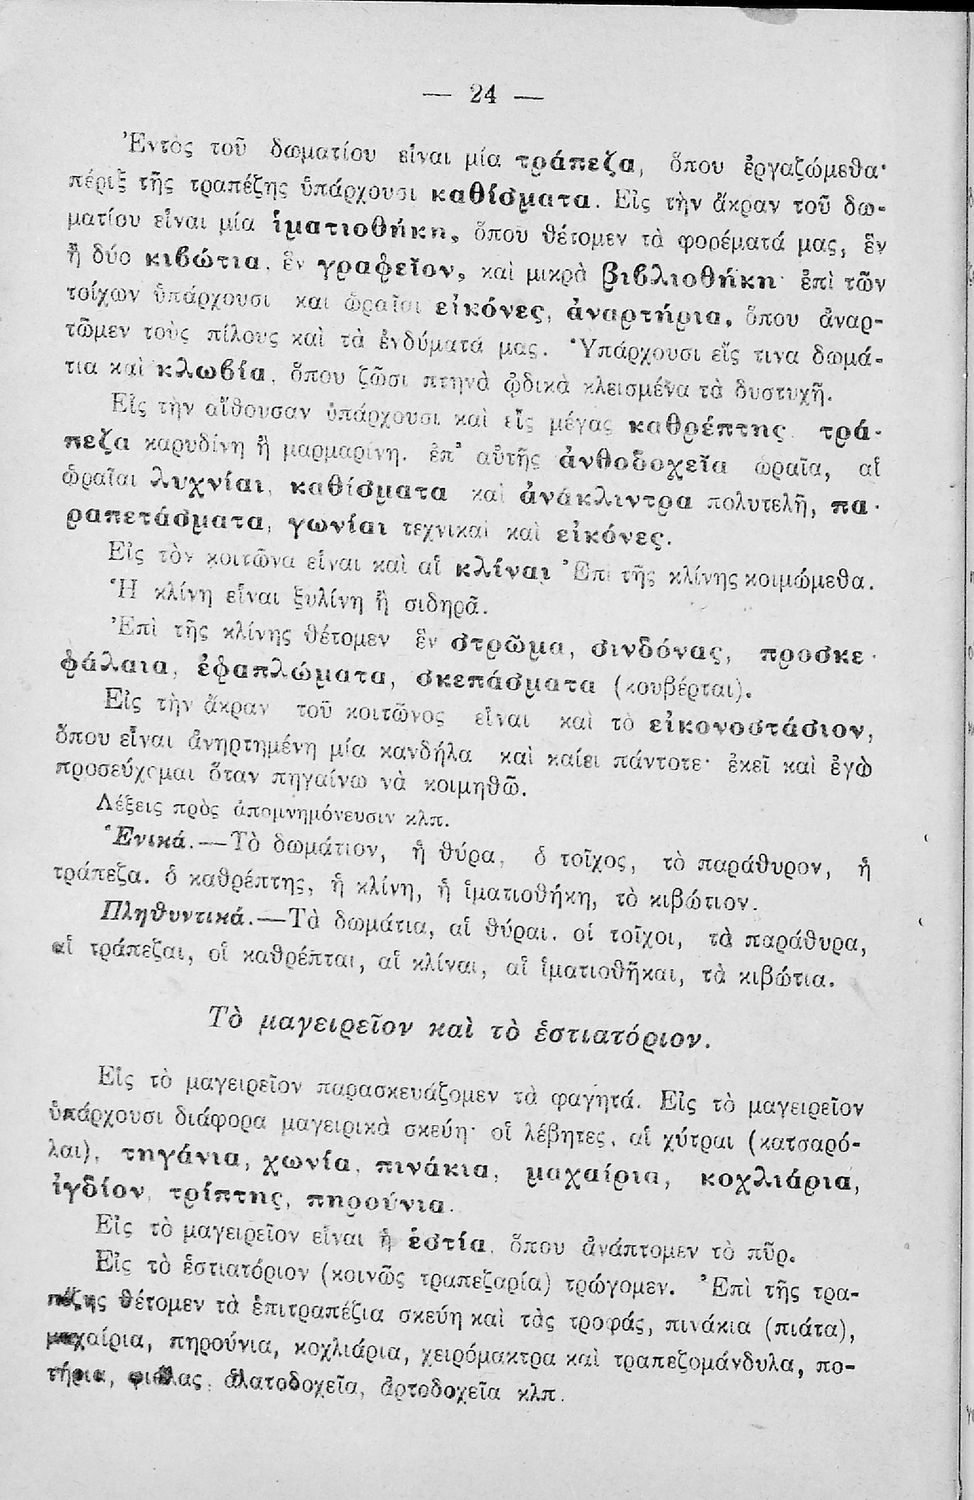 — 24 —
Ἐντὸς τοῦ δωματίου εἶναι μία τράπεζα, ὅπου ἐργαζώμεθα·
πέριξ τῆς τραπέζης ὑπάρχουσι καθίσματα. Εἰς τὴν ἄκραν τοῦ δω-
ματίου εἶναι μία ἱματιοθήκη, ὅπου θέτομεν τὰ φορέματά μας, ἓν
ἢ δύο κιβώτια, ἓν γραφεῖον, καὶ μικρὰ βιβλιοθήκη· ἐπὶ τῶν
τοίχων ὑπάρχουσι καὶ ὡραῖαι εἰκόνες, ἀναρτήρια, ὅπου ἀναρ-
τῶμεν τοὺς πίλους καὶ τὰ ἐνδύματά μας. Ὑπάρχουσι εἴς τινα δωμά-
τια καὶ κλωβία, ὅπου ζῶσι πτηνὰ ᾠδικὰ κλεισμένα τὰ δυστυχῆ.
Εἰς τὴν αἴθουσαν ὑπάρχουσι καὶ εἷς μέγας καθρέπτης τρά-
πεζα καρυδίνη ἢ μαρμαρίνη. ἐπ' αὐτῆς ἀνθοδοχεῖα ὡραῖα, αἱ
ὡραῖαι λυχνίαι, καθίσματα καὶ ἀνάκλιντρα πολυτελῆ, πα-
ραπετάσματα, γωνίαι τεχνικαὶ καὶ εἰκόνες.
Εἰς τὸν κοιτῶνα εἶναι καὶ αἱ κλίναι Ἐπὶ τῆς κλίνης κοιμώμεθα.
Ἡ κλίνη εἶναι ξυλίνη ἢ σιδηρᾶ.
Ἐπὶ τῆς κλίνης θέτομεν ἓν στρῶμα, σινδόνας, προσκε-
φάλαια, ἐφαπλώματα, σκεπάσματα (κουβέρται).
Εἰς τὴν ἄκραν τοῦ κοιτῶνος εἶναι καὶ τὸ εἰκονοστάσιον,
ὅπου εἶναι ἀνηρτημένη μία κανδήλα καὶ καίει πάντοτε· ἐκεῖ καὶ ἐγὼ
προσεύχομαι ὅταν πηγαίνω νὰ κοιμηθῶ.
Λέξεις πρὸς ἀπομνημόνευσιν κλπ.
Ἑνικά.—Τὸ δωμάτιον, ἡ θύρα, ὁ τοῖχος, τὸ παράθυρον, ἡ
τράπεζα. ὁ καθρέπτης, ἡ κλίνη, ἡ ἱματιοθήκη, τὸ κιβώτιον.
Πληθυντικά.—Τὰ δωμάτια, αἱ θύραι. οἱ τοῖχοι, τὰ παράθυρα,
αἱ τράπεζαι, οἱ καθρέπται, αἱ κλίναι, αἱ ἱματιοθῆκαι, τὰ κιβώτια.
Τὸ μαγειρεῖον καὶ τὸ ἑστιατόριον.
Εἰς τὸ μαγειρεῖον παρασκευάζομεν τὰ φαγητά. Εἰς τὸ μαγειρεῖον
ὑπάρχουσι διάφορα μαγειρικὰ σκεύη· οἱ λέβητες, αἱ χύτραι (κατσαρό-
λαι), τηγάνια, χωνία, πινάκια, μαχαίρια, κοχλιάρια,
ἰγδίον, τρίπτης, πηρούνια.
Εἰς τὸ μαγειρεῖον εἶναι ἡ ἑστία, ὅπου ἀνάπτομεν τὸ πῦρ.
Εἰς τὸ ἑστιατόριον (κοινῶς τραπεζαρία) τρώγομεν. Ἐπὶ τῆς τρα-
πέζης θέτομεν τὰ ἐπιτραπέζια σκεύη καὶ τὰς τροφάς, πινάκια (πιάτα),
μαχαίρια, πηρούνια, κοχλιάρια, χειρόμακτρα καὶ τραπεζομάνδυλα, πο-
τήρια, φιάλας, ἁλατοδοχεῖα, ἀρτοδοχεῖα κλπ.